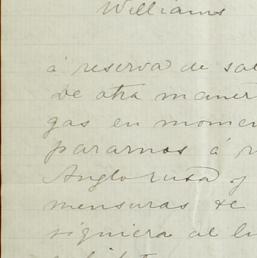 Williams
á reserva de sal
de otra maner
gas en momen
pararnos á r
Anglorusa y
mensuras de
siquiera al l